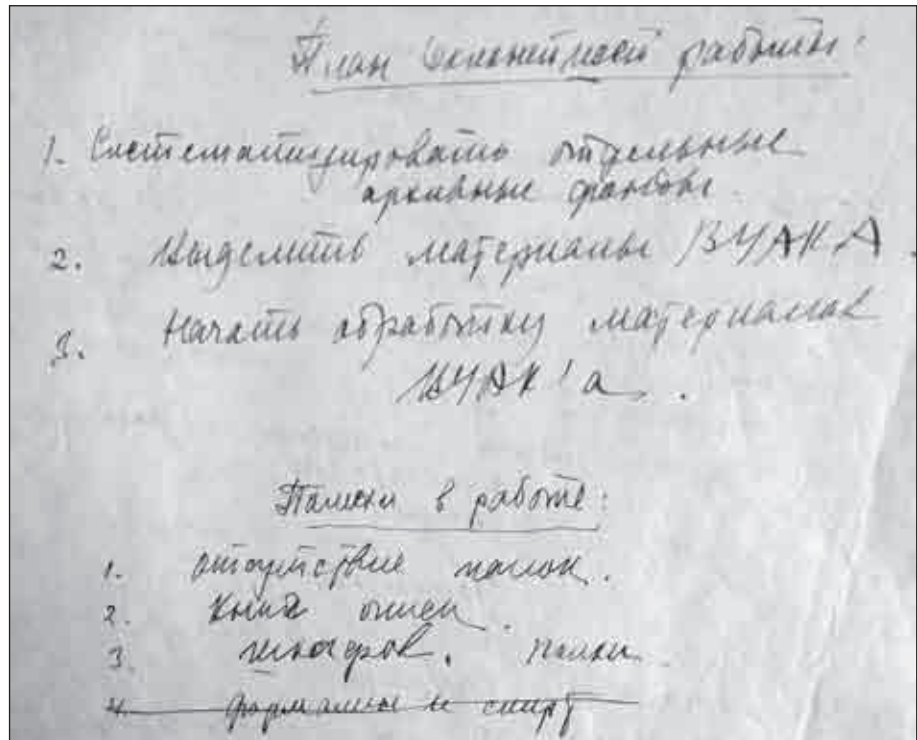 План работы:
1. Систематизировать отдельные
архивные фонды.
2. Выделить материалы ВУАКА.
3. Начать обработку материалов
ВУАК'а.
в работе:
1. отсутствие папок.
2. Книг описей
3. папки
4. формалин и спирт